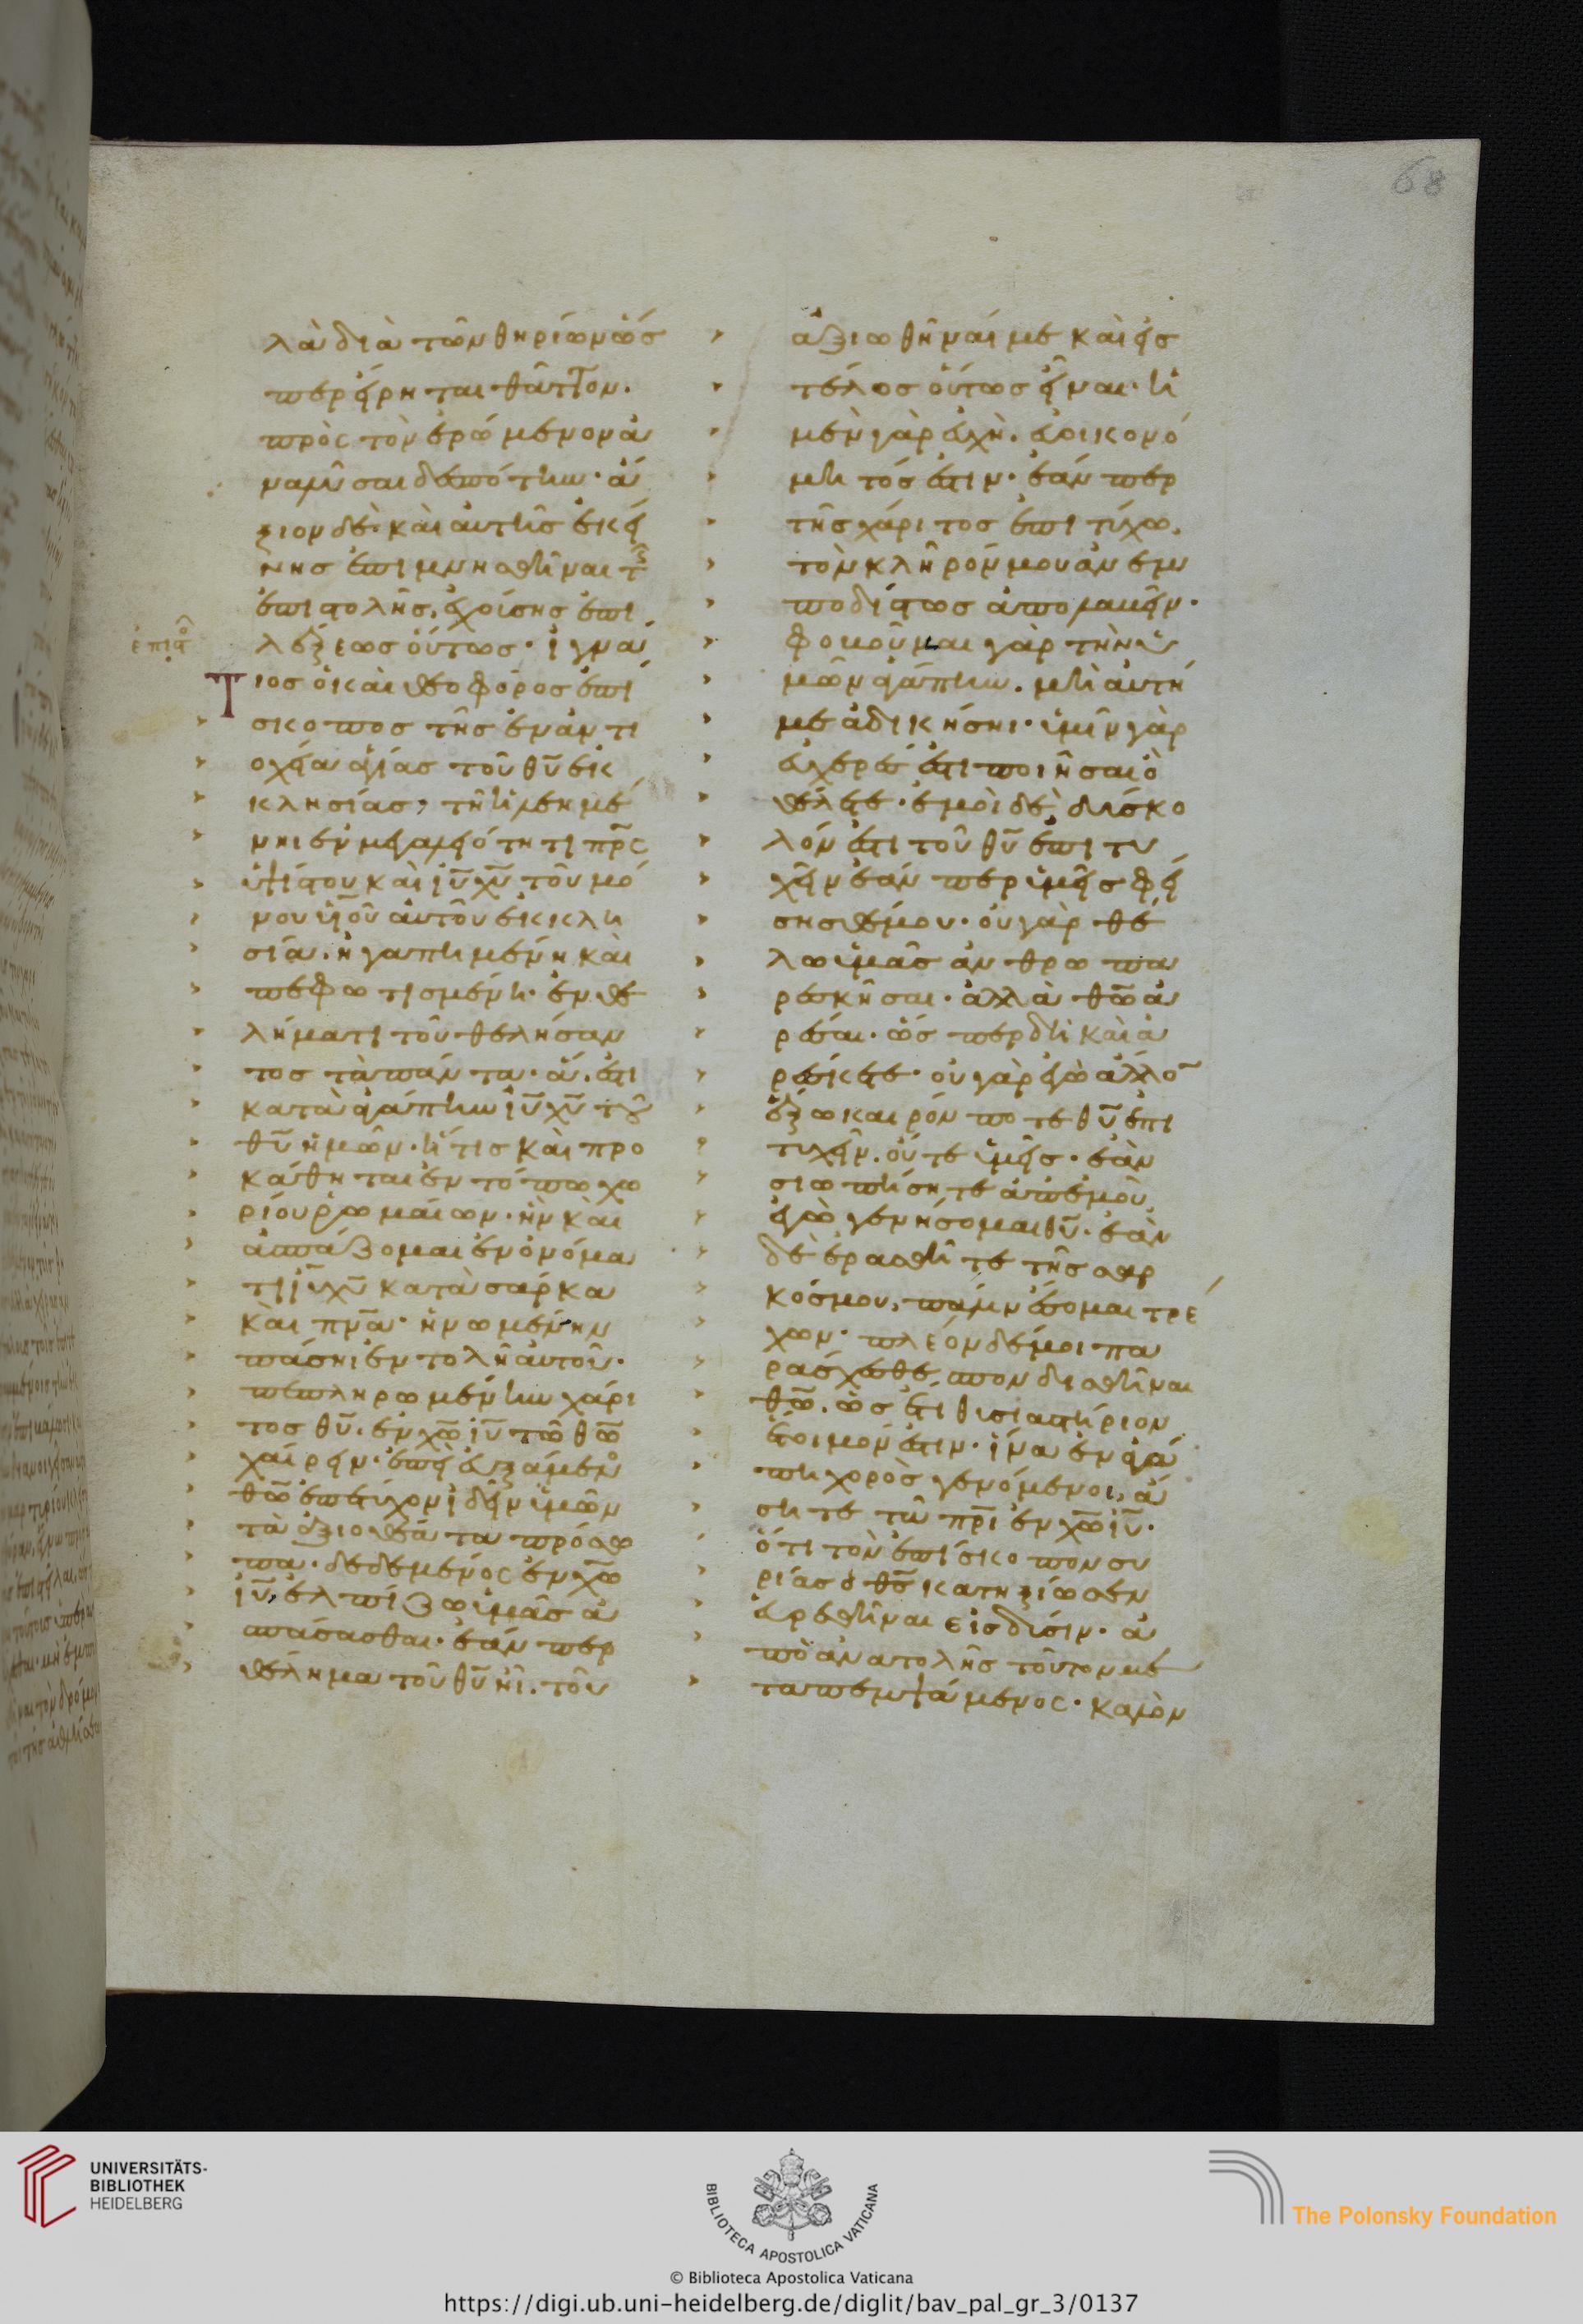 λὰ διὰ τῶν θηρίων ὥσ
περ εἴρηται θᾶττον.
πρὸς τὸν ἐρώμενον ἀ
ναλῦσαι δεσπότην· ἄ
ξιον δὲ καὶ αὐτῆς ἐκεί
νης ἐπιμνησθῆναι τῆς
ἐπιστολῆς, ἐχούσης ἐπι
ἐπιστο
λέξεως οὕτως· ἰγνά
τιος ὁ καὶ θεοφόρος ἐπί
σκοπος τῆς ἐν ἀντι
οχεία ἁγίας τοῦ θ̅υ̅ ἐκ
κλησίας, τῆ ἠλεημέ
νηι ἐν μεγαλειότητι π̅ρ̅ς̅
ὑψίστου καὶ ι̅υ̅ χ̅υ̅ τοῦ μό
νου υἱοῦ αὐτοῦ ἐκκλη
σία. ἠγαπημένη καὶ
πεφωτισμένη· ἐν θε
λήματι τοῦ θελήσαν
τος τὰ πάντα· ἅ ἐστι
κατὰ ἀγάπην ι̅υ̅ χ̅υ̅ τοῦ
θ̅υ̅ ἡμῶν· ἥτις καὶ προ
κάθηται ἐν τόπω χω
ρίου ῥωμαίων· ἣν καὶ
ἀσπάζομαι ἐν ὀνόμα
τι ι̅υ̅ χ̅υ̅ κατὰ σάρκα
καὶ π̅ν̅α̅· ἡνωμένην
πάσηι ἐντολῆ αὐτοῦ·
πεπληρωμένην χάρι
τος θ̅υ̅. ἐν χ̅ω̅ ι̅υ̅ τῶ θ̅ω̅
χαίρειν· ἐπεὶ εὐξάμενος
θ̅ω̅ ἐπέτυχον ἰδεῖν ὑμῶν
τὰ ἀξιοθέατα πρόσω
πα· δεδεμένος ἐν χ̅ω̅
ι̅υ̅, ἐλπίζω ὑμᾶς ἀ
σπάσασθαι· ἐάν περ
θέλημα τοῦ θ̅υ̅ ἦι. τοῦ
ἀξιωθῆναί με καὶ εἰς
τέλος οὕτως εἶναι· ἡ
μὲν γὰρ ἀρχὴ. εὐοικονό
μητός ἐστιν· ἐάν περ
τῆς χάριτος ἐπιτύχω,
τὸν κλῆρόν μου ἀνεμ
ποδίστως ἀπολαβεῖν·
φοβοῦμαι γὰρ τὴν ὑ
μῶν ἀγάπην. μὴ αὐτή
με ἀδικήσηι· ὑμῖν γὰρ
εὐχερές ἐστι ποιῆσαι ὃ
θέλετε· ἐμοὶ δὲ δύσκο
λόν ἐστι τοῦ θ̅υ̅ ἐπιτυ
χεῖν ἐάν περ ὑμεῖς φεί
σησθέ μου· οὐ γὰρ θέ
λω ὑμᾶς ἀνθρωπα
ρεσκῆσαι· ἀλλὰ θ̅ω̅ ἀ
ρέσαι· ὥσπερ δὴ καὶ ἀ
ρέσκετε· οὐ γὰρ ἐγὼ ἄλλον
ἕξω καιρόν ποτε θ̅υ̅ ἐπι
τυχεῖν. οὔτε ὑμεῖς· ἐὰν
σιωπήσητε ἀπ' ἐμοῦ,
ἐγὼ γενήσομαι θ̅υ̅. ἐὰν
δὲ ἐρασθῆτε τῆς σαρ
κόσμου, πάλιν ἔσομαι τρέ
χων· πλέον δέ μοι πα
ράσχεσθε, σπονδισθῆναι
θ̅ω̅. ὡς ἔτι θυσιαστήριον
ἕτοιμόν ἐστιν· ἵνα ἐν ἀγά
πη χορὸς γενόμενοι, ἄ
σητε τῶ π̅ρ̅ι̅ ἐν χ̅ω̅ ι̅υ̅·
ὅτι τὸν ἐπίσκοπον συ
ρίας ὁ θ̅ς̅ κατηξίωσεν
εὑρεθῆναι εἰς δύσιν· ἀ
πὸ ἀνατολῆς τοῦτον με
ταπεμψάμενος· καλὸν
68
UNIVERSITÄTS-
BIBLIOTHEK
HEIDELBERG
BIBLIOTECA APOSTOLICA VATICANA
The Polonsky Foundation
© Biblioteca Apostolica Vaticana
https://digi.ub.uni-heidelberg.de/diglit/bav_pal_gr_3/0137